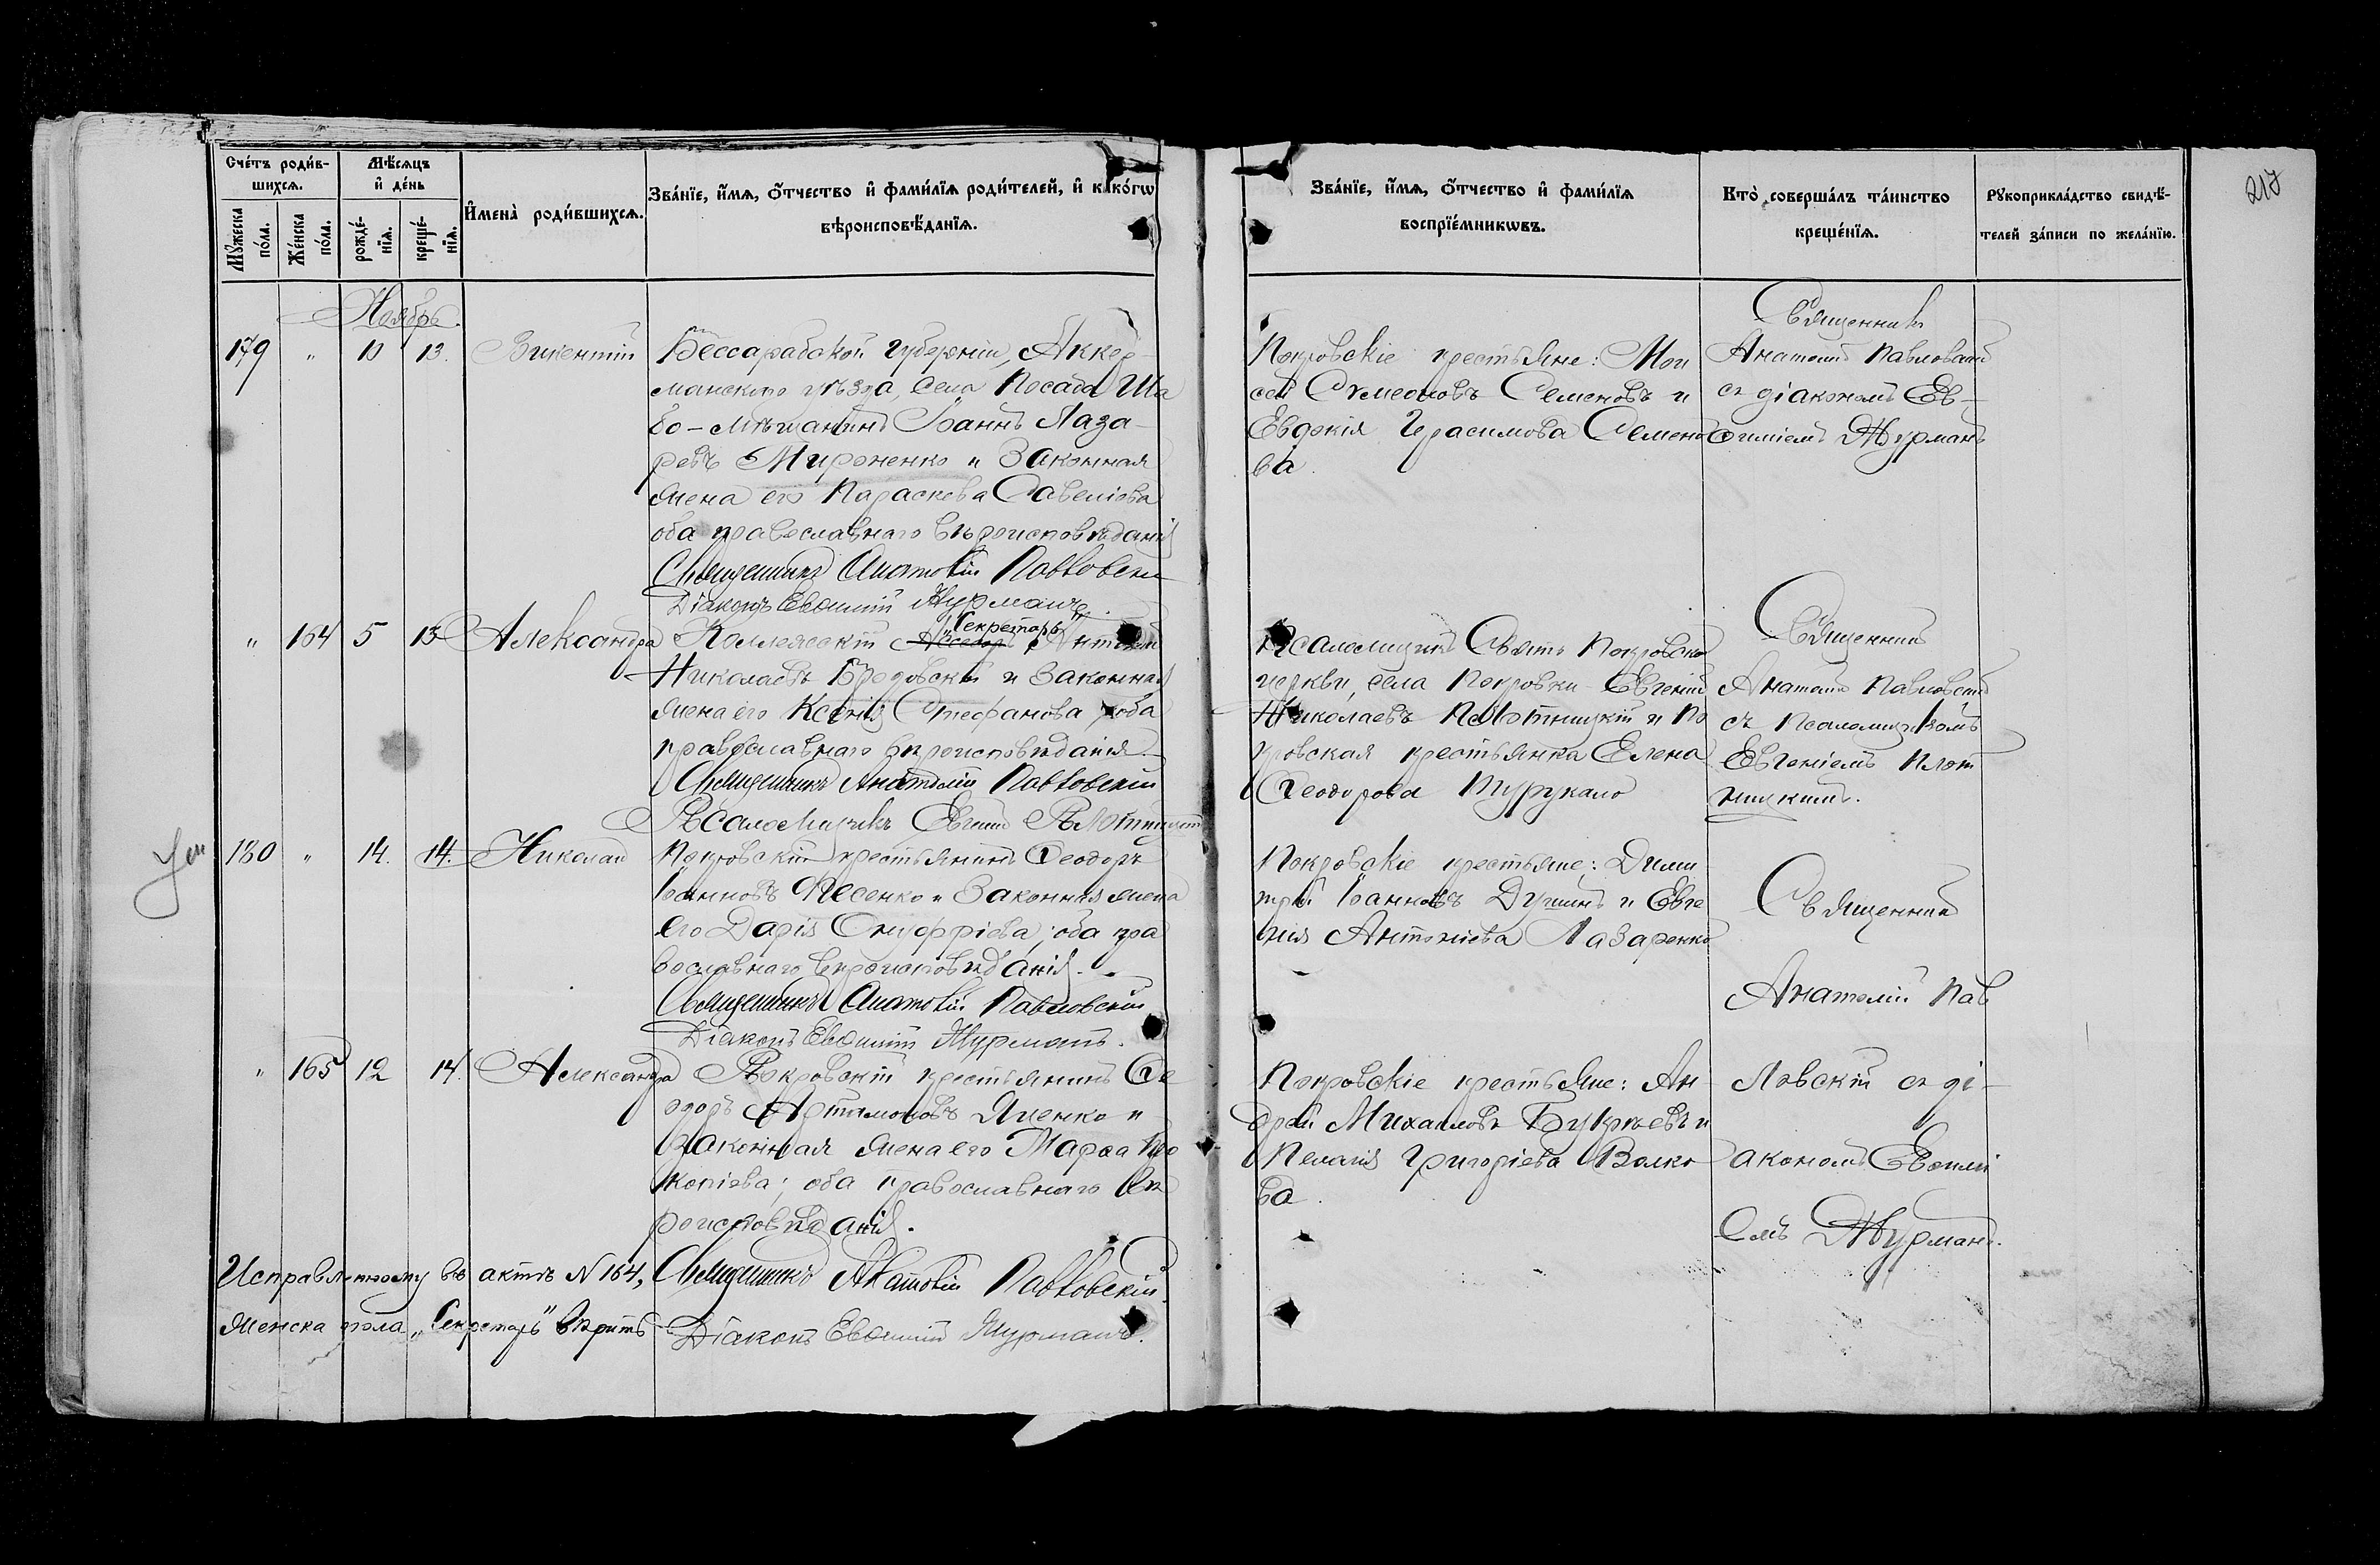 Счетъ родив-
шихся.
Мѣсяцъ
и день
Мужеска пола.
Женска пола.
рожде-
нія.
креще-
нія.
Имена родившихся.
Званіе, имя, отчество и фамилія родителей, и какогѡ
вѣроисповѣданія.
Званіе, имя, отчество и фамилія
воспріемникѡвъ.
Кто совершалъ таинство
крещенія.
Рукоприкладство свидѣ-
телей записи по желанію.
217
Ноябрь.
179 " 10 13. Викентій
Бессарабской губерніи, Аккер-
манскаго уѣзда, села Посада Ша
бо - мѣщанинъ Іоаннъ Лаза-
ревъ Мироненко и законная
жена его Параскева Савеліева
оба православнаго вѣроисповѣданія
Священникъ Анатолій Павловскій
Діаконъ Евѳимій Журманъ.
Покровскіе крестьяне: Мои
сей Сѵмеоновъ Семеновъ и
Евдокія Герасимова Семено
ва.
Священникъ
Анатолій Павловскій
съ діакономъ Ев-
ѳиміемъ Журманъ
" 164 5 13 Александра
"Секретарь"
Коллежскій Ассесоръ Антоній
Николаевъ Бродовскій и законная
жена его Ксенія Стефанова, оба
православнаго вѣроисповѣданія.
Священникъ Анатолій Павловскій
Псаломщикъ Евгеній Плотницкій
Псаломщикъ Свято Покровской
церкви, села Покровки Евгеній
Николаевъ Плотницкій и По
кровская крестьянка Елена
Ѳеодорова Турукало
Священникъ
Анатолій Павловскій
съ Псаломщикомъ
Евгеніемъ Плот
ницкимъ.
180 " 14. 14. Николай
Покровскій крестьянинъ Ѳеодоръ
Іоанновъ Фесенко и законная жена
его Дарія Онуфріева, оба пра
вославнаго вѣроисповѣданія.
Священникъ Анатолій Павловскій
Діаконъ Евѳимій Журманъ.
Покровскіе крестьяне: Дими
трій Іоанновъ Душинъ и Евге
нія Антоніева Лазаренко
Священникъ
Анатолій Пав
" 165 12 14. Александра
Покровскій крестьянинъ Ѳе
одоръ Артамоновъ Яценко и
законная жена его Марѳа Про
копіева; оба православнаго вѣ
роисповѣданія.
Священникъ Анатолій Павловскій.
Діаконъ Евѳимій Журманъ.
Покровскіе крестьяне: Ан-
дрей Михаиловъ Букрѣевъ и
Пелагія Григоріева Волко
ва.
ловскій съ ді-
акономъ Евѳимі
емъ Журманъ.
Исправленному въ актѣ N 164,
женска пола "Секретарь" вѣрить